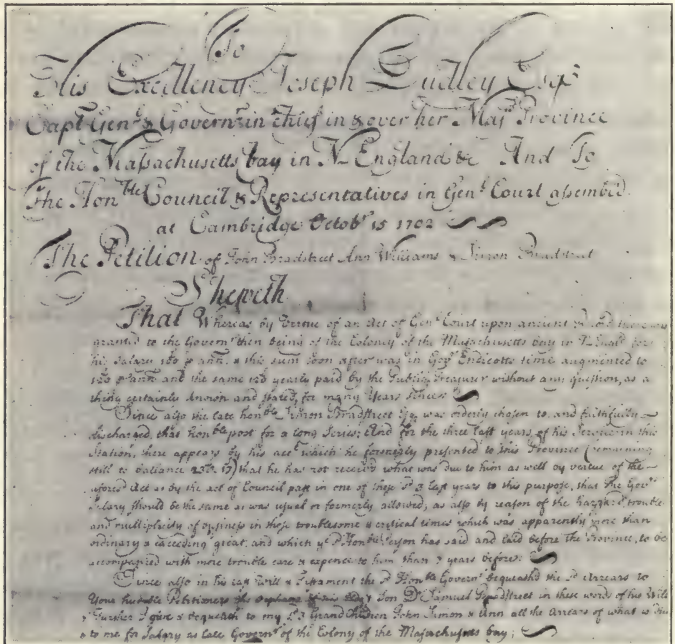 To
His Excellency Joseph Dudley Esqr
Capt Genll & Governr in chief in & over her Majts Province
of the Massachusetts bay in N England &c And To
The Honble Council & Representatives in Genll Court assembled
at Cambridge Octobr 15 1702
The Petition of John Bradstreet Ann Williams & Simon Bradstreet
Sheweth
That Whereas by Virtue of an Act of Genll Court upon ancient there was
granted to the Governr then being of the Colony of the Massachusetts bay in N Engld for
his Salary p ann. & this sum soon after was in Govr Endicotts time augmented to
p ann and the same was yearly paid by the Publiq Treasurer without any question, as a
thing certainly known and stated, for many Years since
Since also the late honble Simon Bradstreet Esq. was orderly chosen to, and faithfully
discharged, that honble post for a long Series; And for the three last years of his Service in this
Station, there appears by his acct which he formerly presented to this Province (remaining
still to ballance ) that he has not received what was due to him as well by vertue of the
aforesd Act as by the act of Council past in one of those 3 last years to this purpose, that the Govrs
Salary should be the same as was usual or formerly allowed, as also by reason of the hazzard, trouble
and multiplicity of business in those troublesome & critical times which was apparently more than
ordinary & exceeding great, and which ye sd Honble Person has said and laid before the Province, to be
accompanied with more trouble care & expence to him than 7 years before.
Since also in his last Will & Testament the sd Honble Governr bequeathd the sd Arrears to
Your humble Petitioners the orphans of his Son Dr Samuel Bradstreet in these words of his Will
Further I give & bequeath to my sd Grand Children John Simon & Ann all the Arrears of what is due
to me for Salary as late Governr of the Colony of the Massachusets bay;